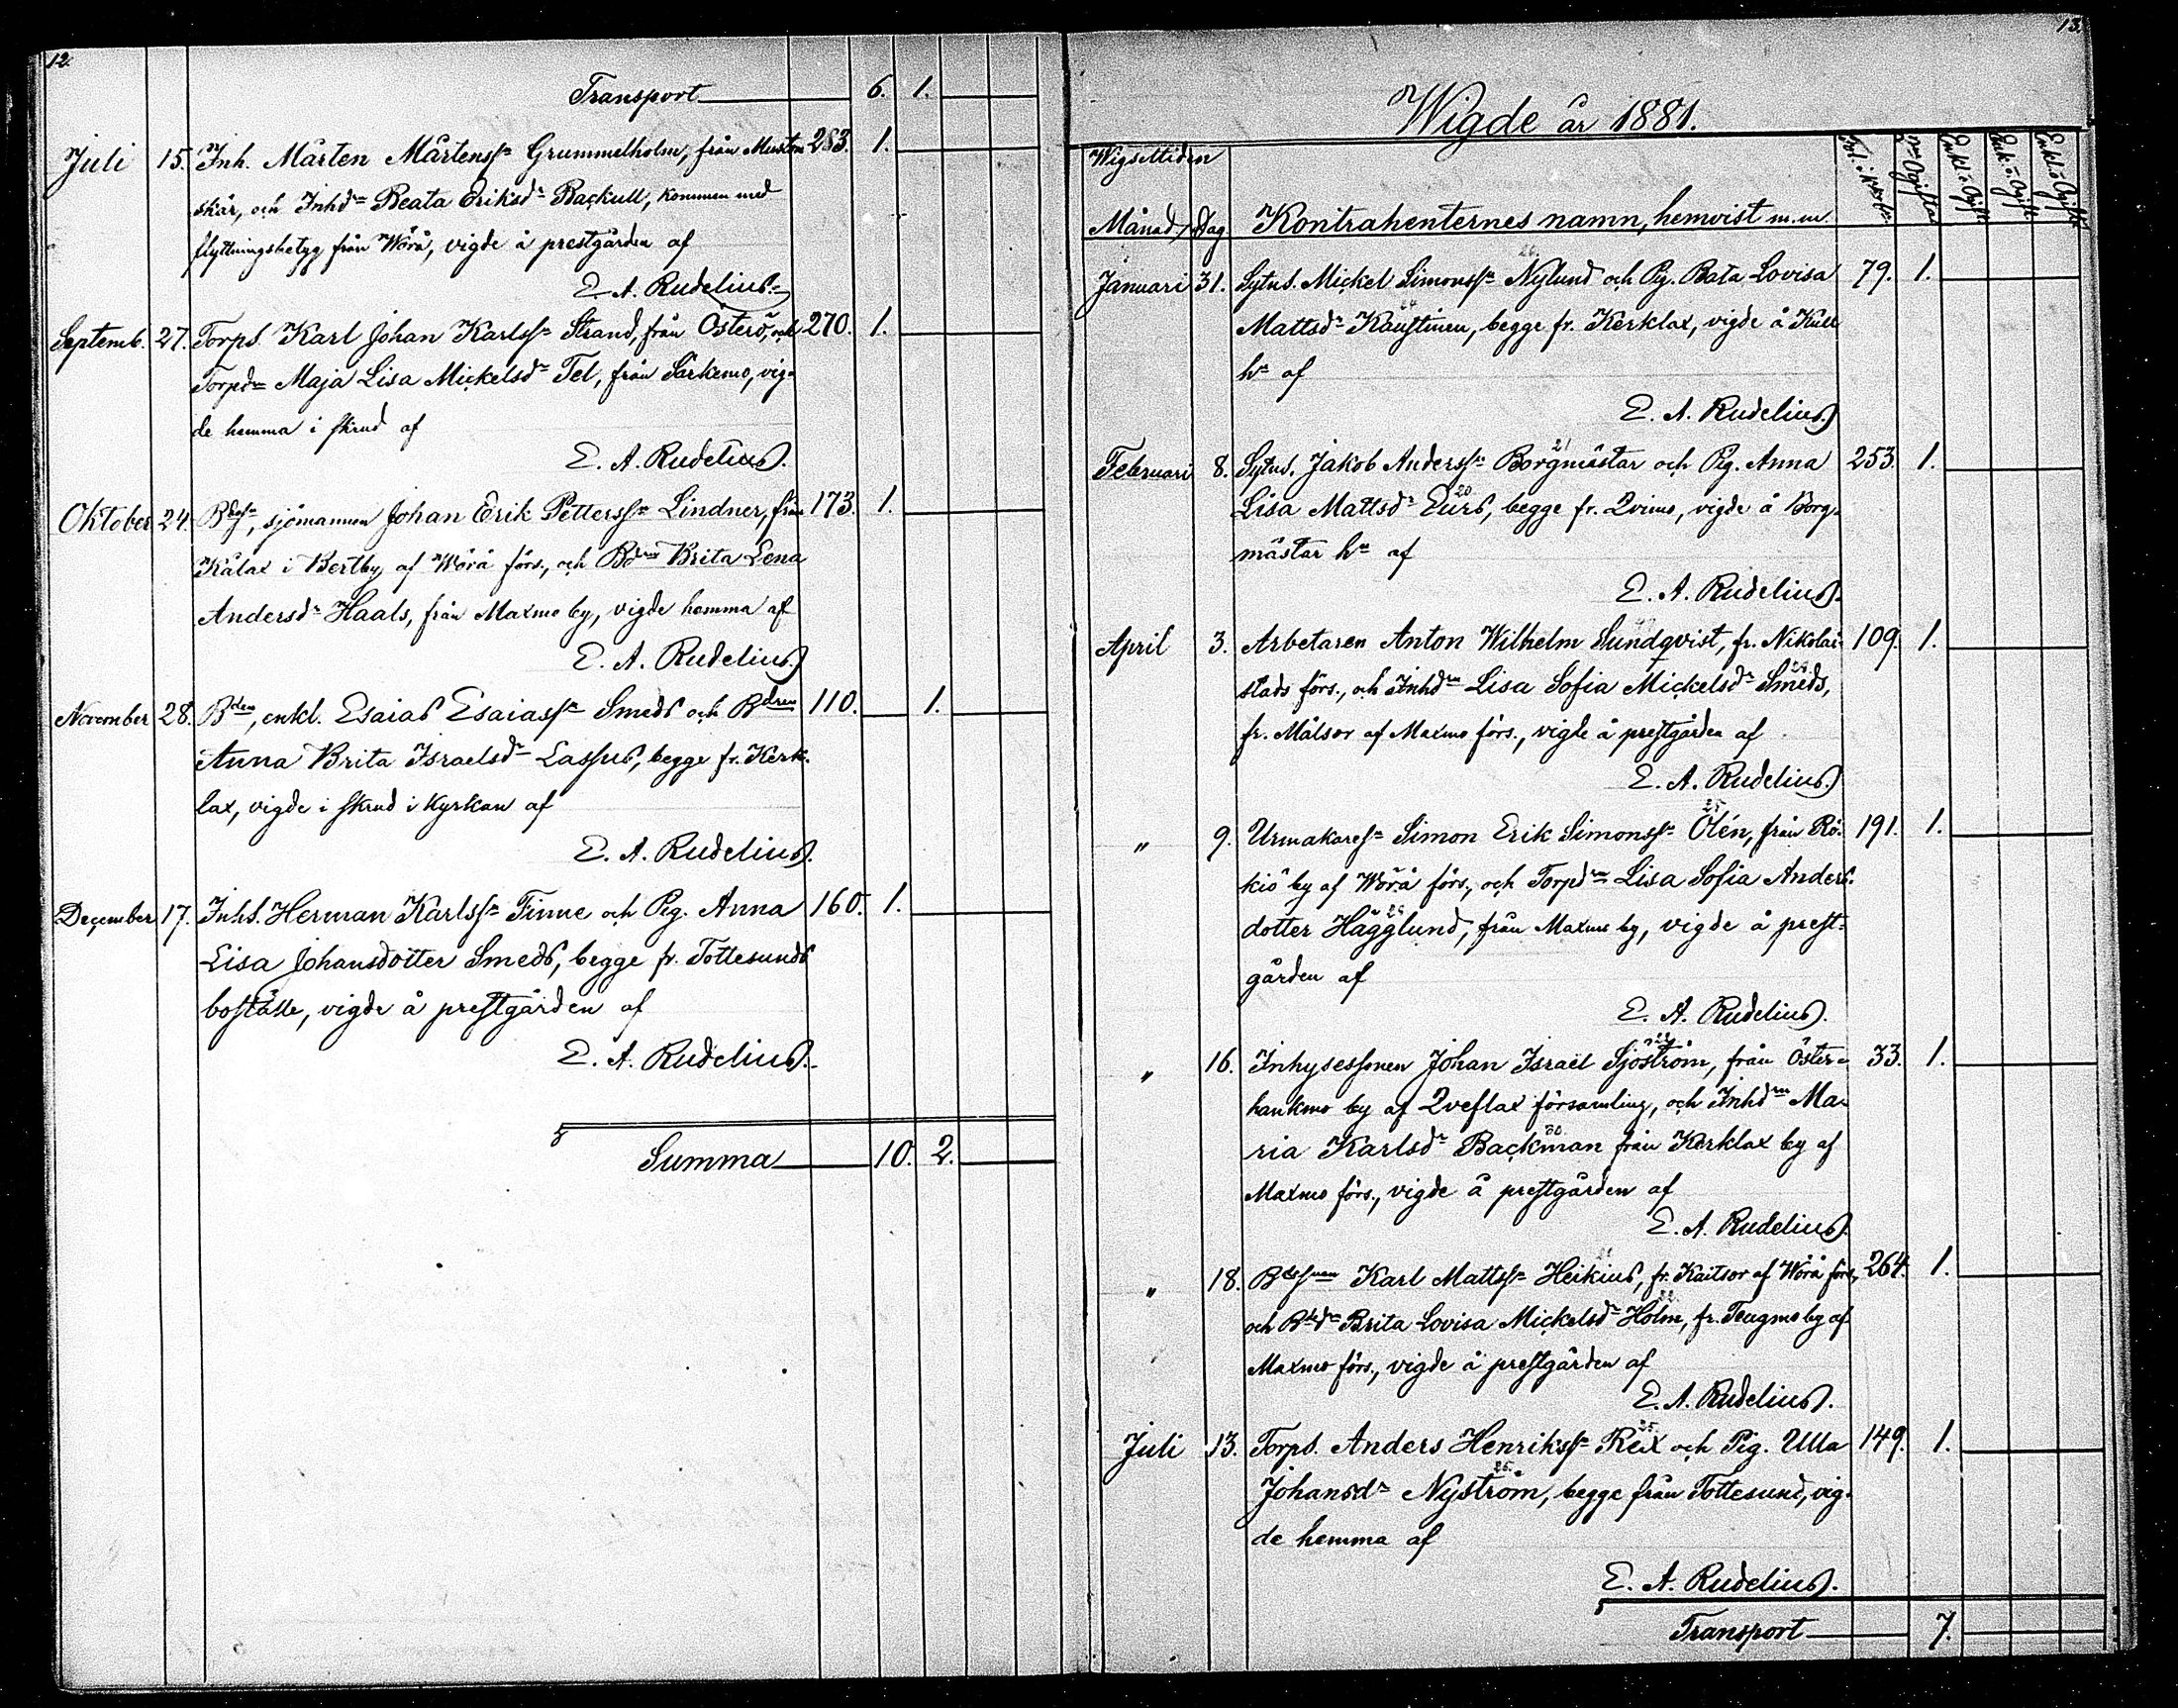 12.
Transport 6. 1.
Juli 15. Inh. Mårten Mårtenssn Grummelholm, från 283. 1.
skär, och Inhdrn Beata Eriksdr Backull, kommen med
flyttningsbetyg från Wörå, vigde å prestgården af
E. A. Rudelius.
Septemb. 27. Torps. Karl Johan Karlssn Strand, från Österö, och 270. 1.
Torpdrn Maja Lisa Mickelsdr Tel, från Särkemo, vig-
de hemma i skrud af
E. A. Rudelius.
Oktober 24. Bdesn, sjömannen Johan Erik Petterssn Lindner, från 173. 1.
Kålax i Bertby af Wörå förs., och Bdrn Brita Lena
Andersdr Haals, från Maxmo by, vigde hemma af
E. A. Rudelius.
November 28. Bden, enkl. Esaias Esaiassn Smeds och Bdren 110. 1.
Anna Brita Israelsdr Lassus, begge fr. Kerk-
lax, vigde i skrud i kyrkan af
E. A. Rudelius.
December 17. Inhs. Herman Karlssn Finne och Pig. Anna 160. 1.
Lisa Johansdotter Smeds, begge fr. Tottesunds
boställe, vigde å prestgården af
E. A. Rudelius.
Summa 10. 2.
13.
Wigde år 1881.
Wigseltiden
Månad Dag Kontrahenternes namn, hemvist m.m.
Januari 31. Sytns. Mickel Simonssn Nylund och Pg. Bata Lovisa 79. 1.
Mattsdr Kaustinen, begge fr. Kerklax, vigde å Kull
hn af
E. A. Rudelius.
21
Februari 8. Sytns. Jakob Anderssn Borgmästar och Pig. Anna 253. 1.
20
Lisa Mattsdr Eurs, begge fr. Qvimo, vigde å Borg-
mästar hn af
E. A. Rudelius.
April 3. Arbetaren Anton Wilhelm Sundqvist, fr. Nikolai- 109. 1.
stads förs., och Inhdrn Lisa Sofia Mickelsdr Smeds,
fr. Målsor af Maxmo förs., vigde å prestgården af
E. A. Rudelius.
25
" 9. Urmakaresn Simon Erik Simonssn Olén, från Rö- 191. 1.
kiö by af Wörå förs., och Torpdrn Lisa Sofia Anders-
dotter Hägglund, från Maxmo by, vigde å prest-
gården af
E. A. Rudelius.
" 16. Inhysessonen Johan Israel Sjöström, från Öster- 33. 1.
hankmo by af Qveflax församling, och Inhdrn Ma-
30
ria Karlsdr Backman från Kerklax by af
Maxmo förs., vigde å prestgården af
E. A. Rudelius.
" 18. Bdessnen Karl Mattssn Heikius, fr. Kaitsor af Wörå förs., 264. 1.
och Bdedr Brita Lovisa Mickelsdr Holm, fr. Teugmo by af
Maxmo förs., vigde å prestgården af
E. A. Rudelius.
25
Juli 13. Torps. Anders Henrikssn Rex och Pig. Ulla 149. 1.
25.
Johansdr Nyström, begge från Tottesund, vig-
de hemma af
E. A. Rudelius.
Transport 7.